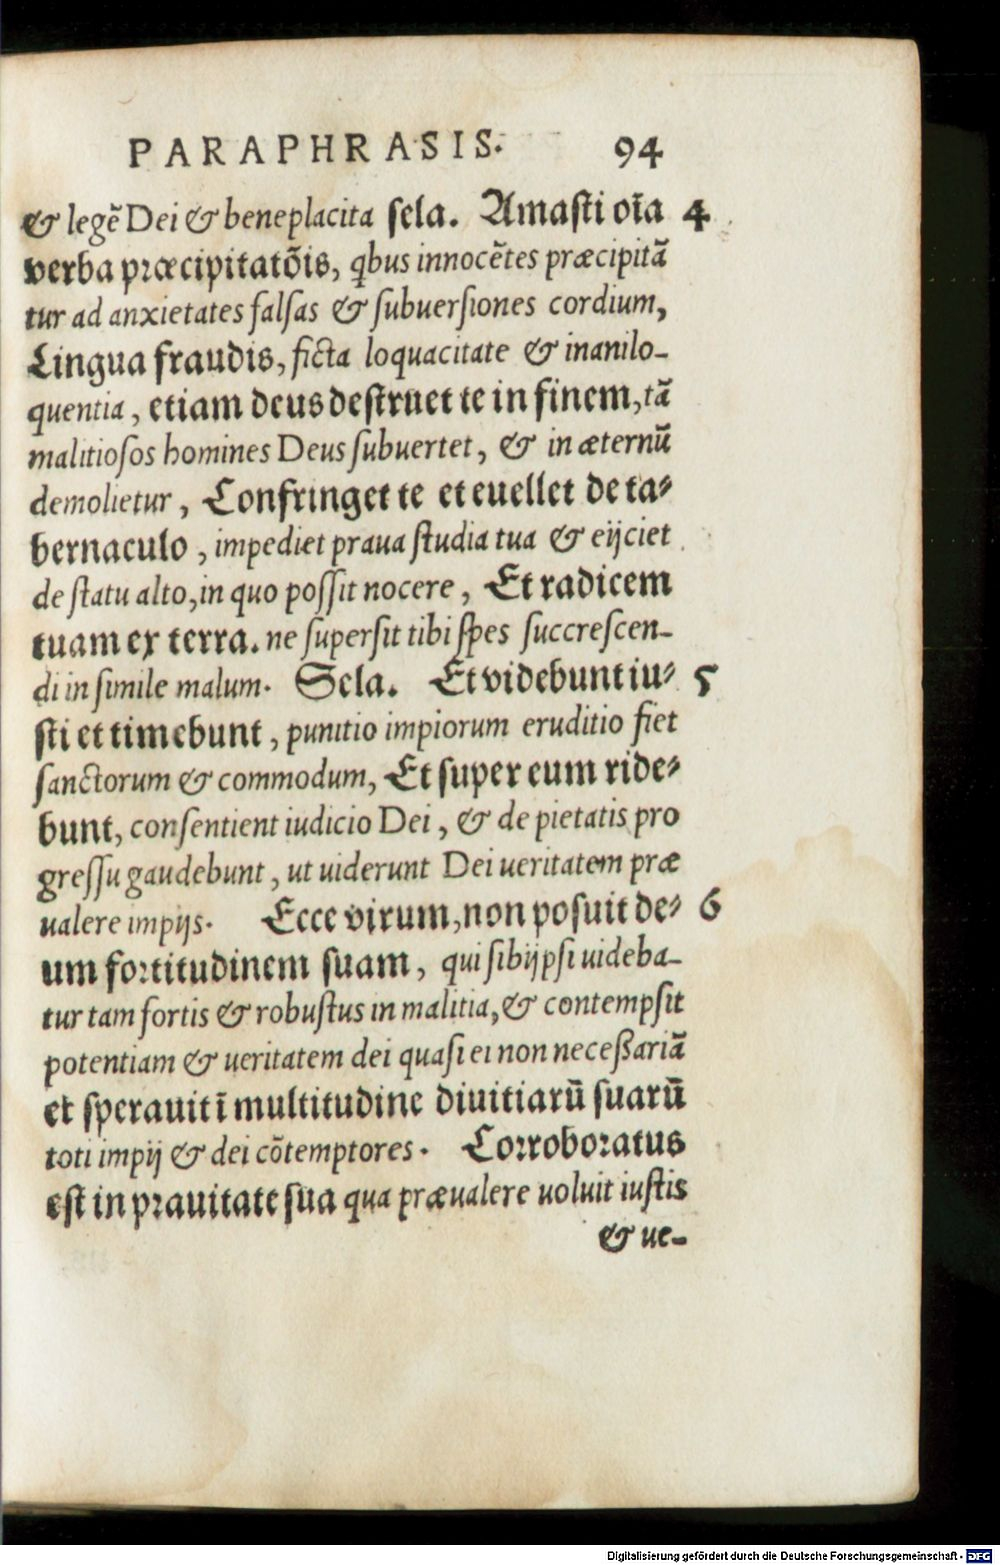 PARAPHRASIS. 94
& legẽ Dei & beneplacita sela. Amasti oĩa 4
verba præcipitatõis, qbus innocẽtes præcipitã
tur ad anxietates falsas & subuersiones cordium,
Lingua fraudis, ficta loquacitate & inanilo-
quentia, etiam deus destruet te in finem, tã
malitiosos homines Deus subuertet, & in æternũ
demolietur, Confringet te et euellet de ta-
bernaculo, impediet praua studia tua & eijciet
de statu alto, in quo possit nocere, Et radicem
tuam ex terra. ne supersit tibi spes succrescen-
di in simile malum. Sela. Et videbunt iu- 5
sti et timebunt, punitio impiorum eruditio fiet
sanctorum & commodum, Et super eum ride-
bunt, consentient iudicio Dei, & de pietatis pro
gressu gaudebunt, ut uiderunt Dei ueritatem præ
ualere impijs. Ecce virum, non posuit de- 6
um fortitudinem suam, qui sibijpsi uideba-
tur tam fortis & robustus in malitia, & contempsit
potentiam & ueritatem dei quasi ei non necessariã
et sperauit ĩ multitudine diuitiarũ suarũ
toti impij & dei cõtemptores. Corroboratus
est in prauitate sua qua præualere uoluit iustis
& ue-
Digitalisierung gefördert durch die Deutsche Forschungsgemeinschaft - DFG